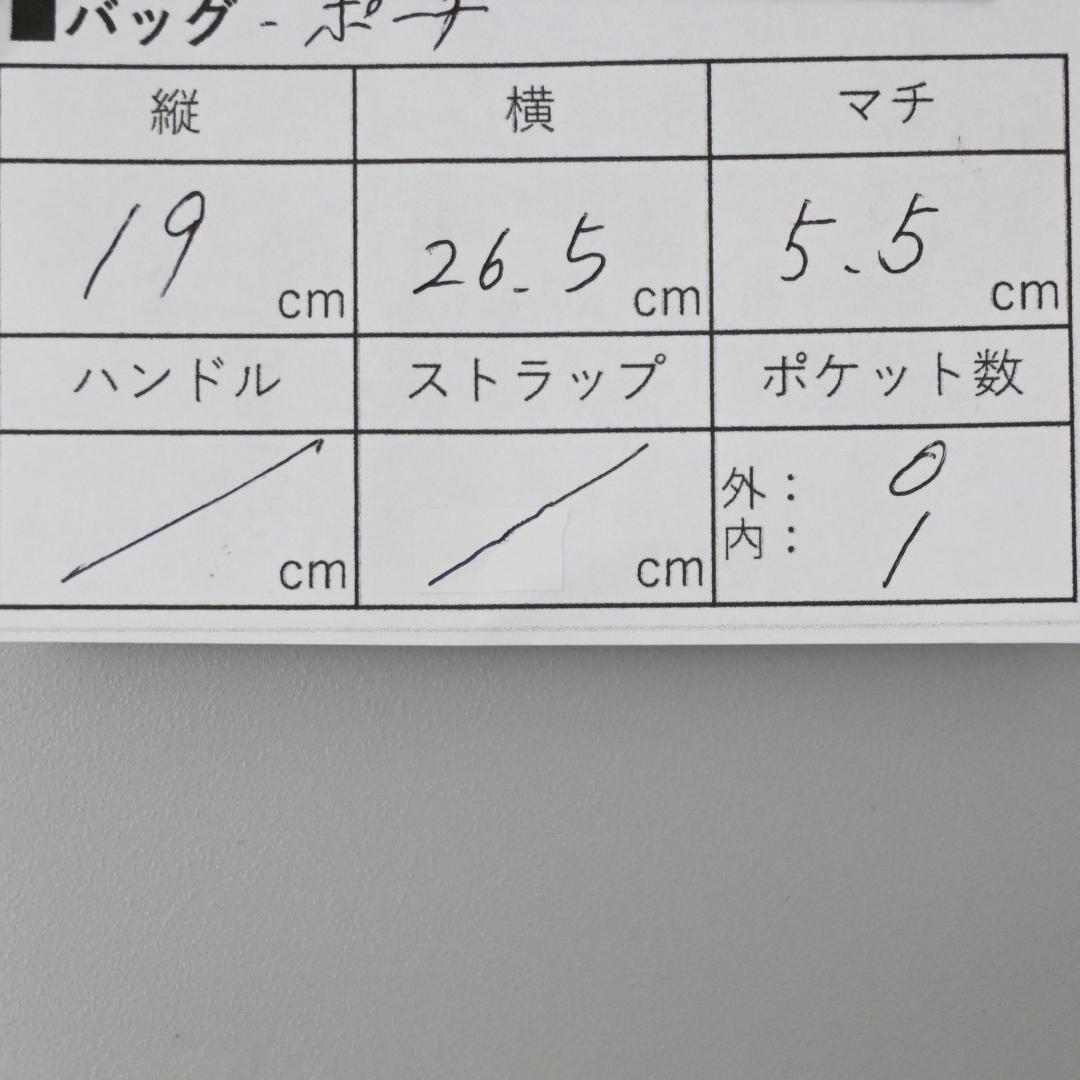 ■バッグ - ポーチ
縦 横 マチ
19 cm 26.5 cm 5.5 cm
ハンドル ストラップ ポケット数
/ cm / cm 外： 0
内： 1